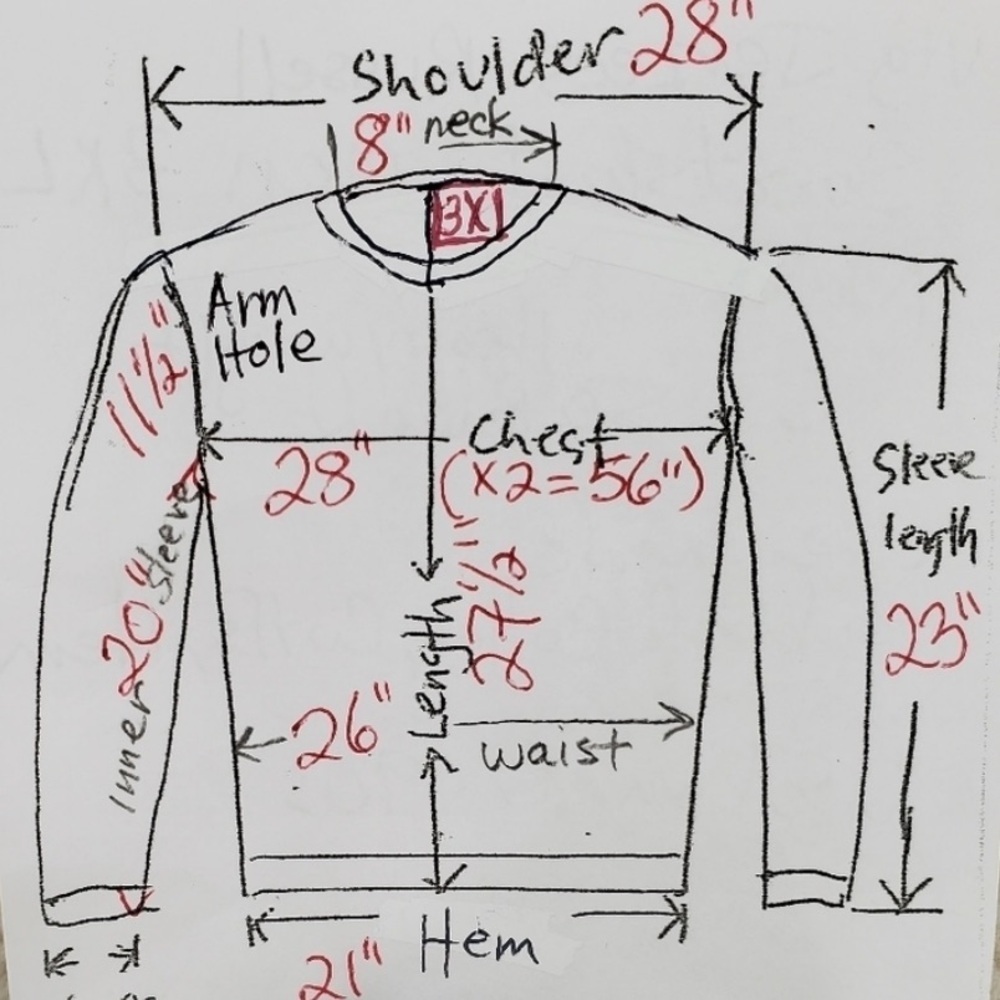 Shoulder 28"
8" neck
3X
Arm
Hole
11 1/2"
Chest
28" (x2=56")
Sleeve
length
23"
Inner 20" Sleeve
Length 27 1/2"
26" waist
Hem
21"